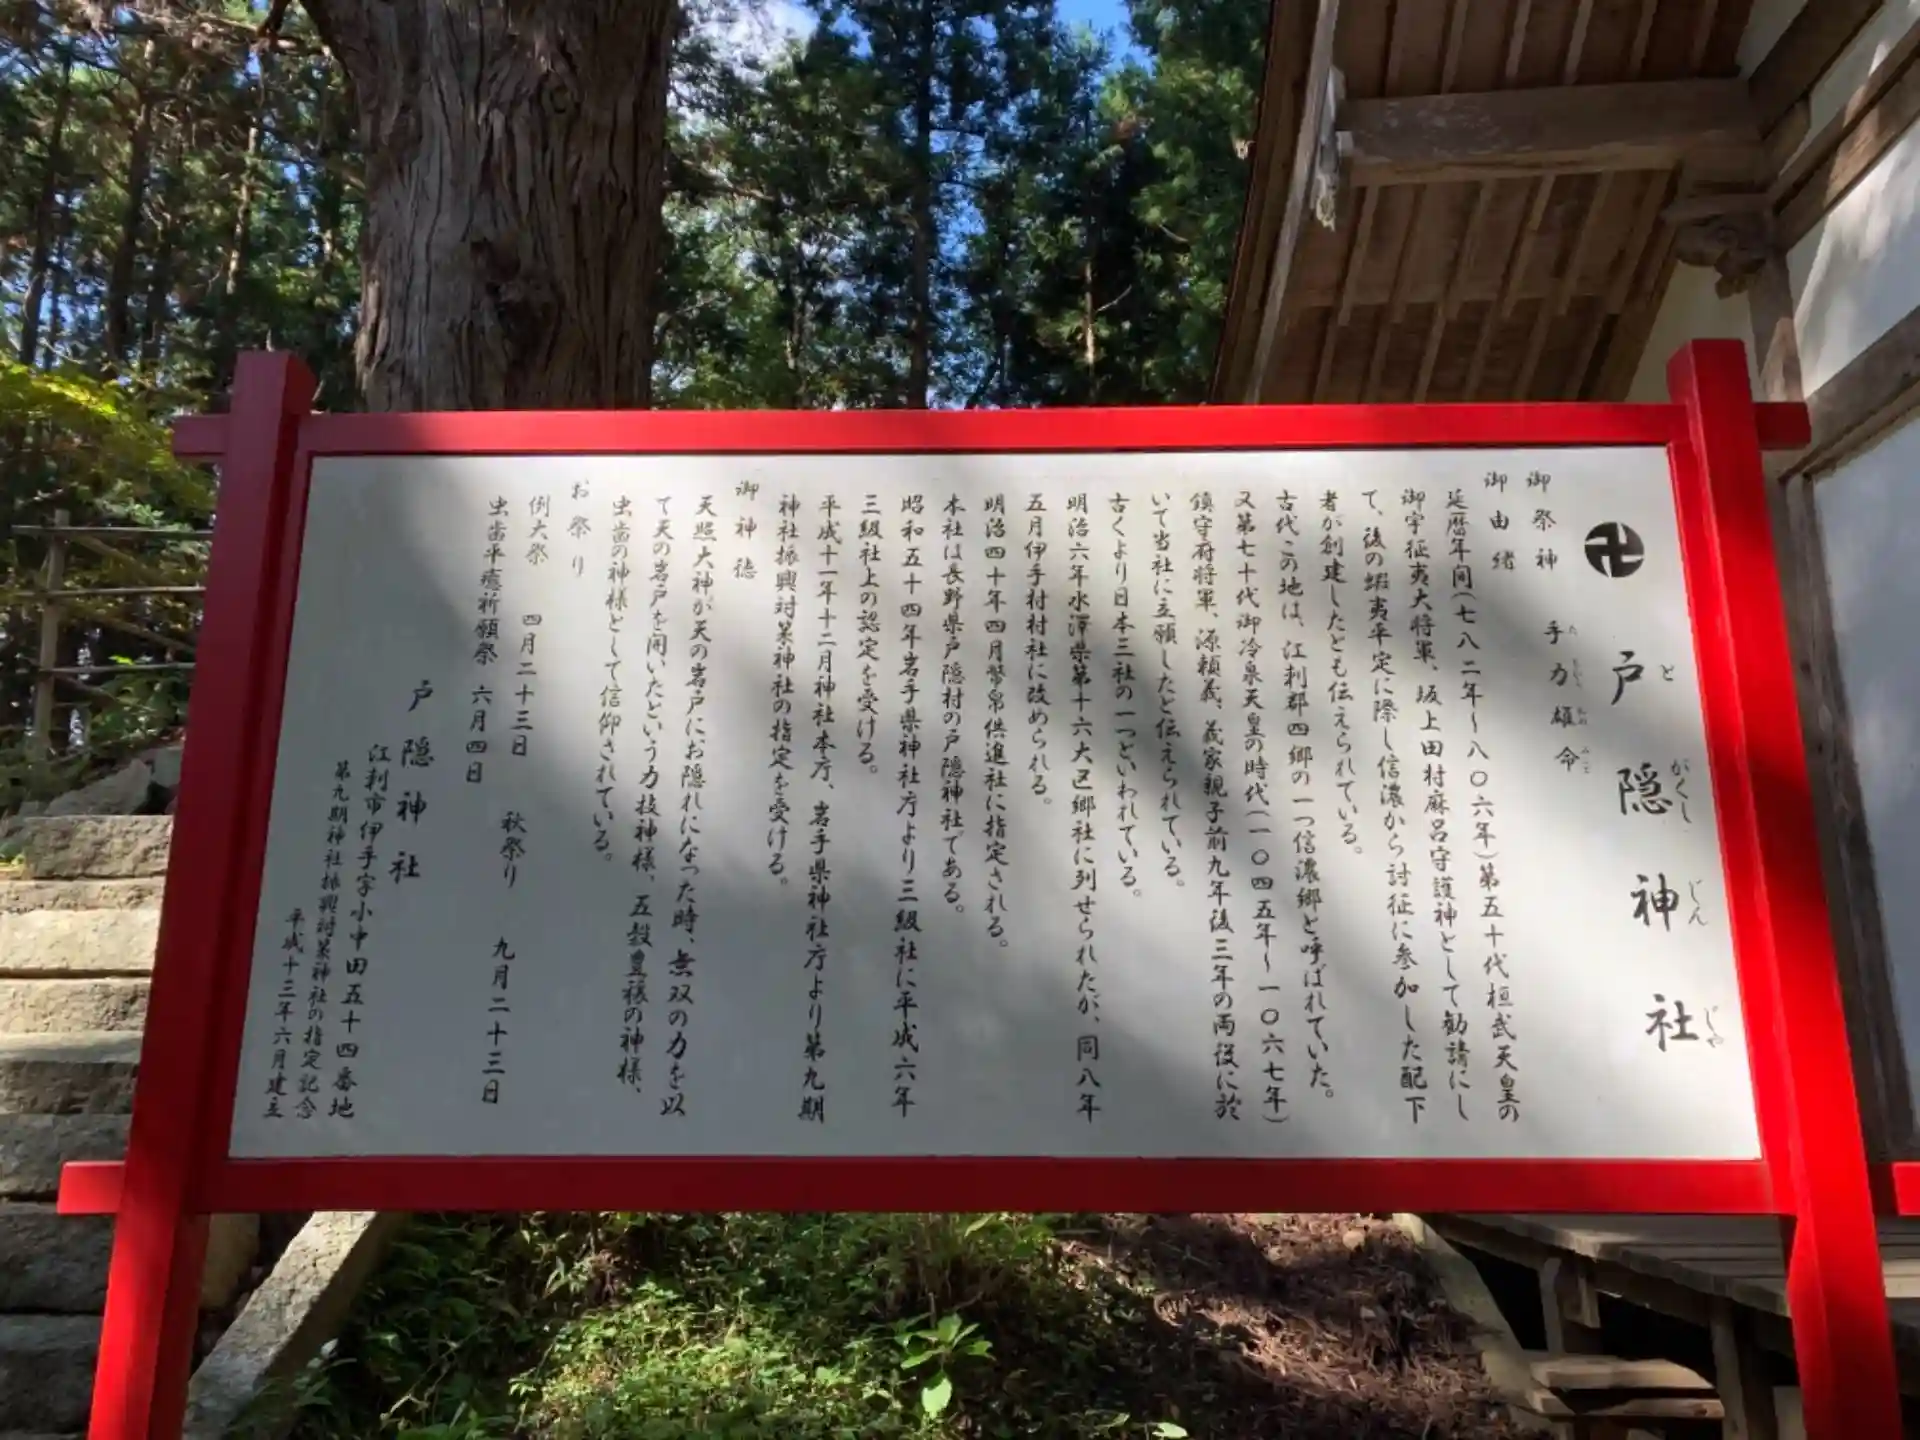 卍 戸隠神社
と がくし じん じゃ
御祭神 手力雄命
た ぢから おの みこと
御由緒
延暦年間(七八二年〜八〇六年)第五十代桓武天皇の
御宇征夷大将軍、坂上田村麻呂守護神として勧請にし
て、後の蝦夷平定に際し信濃から討征に参加した配下
者が創建したとも伝えられている。
古代この地は、江刺郡四郷の一つ信濃郷と呼ばれていた。
又第七十代御冷泉天皇の時代(一〇四五年〜一〇六七年)
鎮守府将軍、源頼義、義家親子前九年後三年の両役に於
いて当社に立願したと伝えられている。
古くより日本三社の一つといわれている。
明治六年水澤県第十六大区郷社に列せられたが、同八年
五月伊手村村社に改められる。
明治四十年四月幣帛供進社に指定される。
本社は長野県戸隠村の戸隠神社である。
昭和五十四年岩手県神社庁より三級社に平成六年
三級社上の認定を受ける。
平成十一年十二月神社本庁、岩手県神社庁より第九期
神社振興対策神社の指定を受ける。
御神徳
天照大神が天の岩戸にお隠れになった時、無双の力を以
て天の岩戸を開いたという力技神様、五穀豊穣の神様、
虫歯の神様として信仰されている。
お祭り
例大祭 四月二十三日 秋祭り 九月二十三日
虫歯平癒祈願祭 六月四日
戸隠神社
江刺市伊手字小中田五十四番地
第九期神社振興対策神社の指定記念
平成十三年六月建立